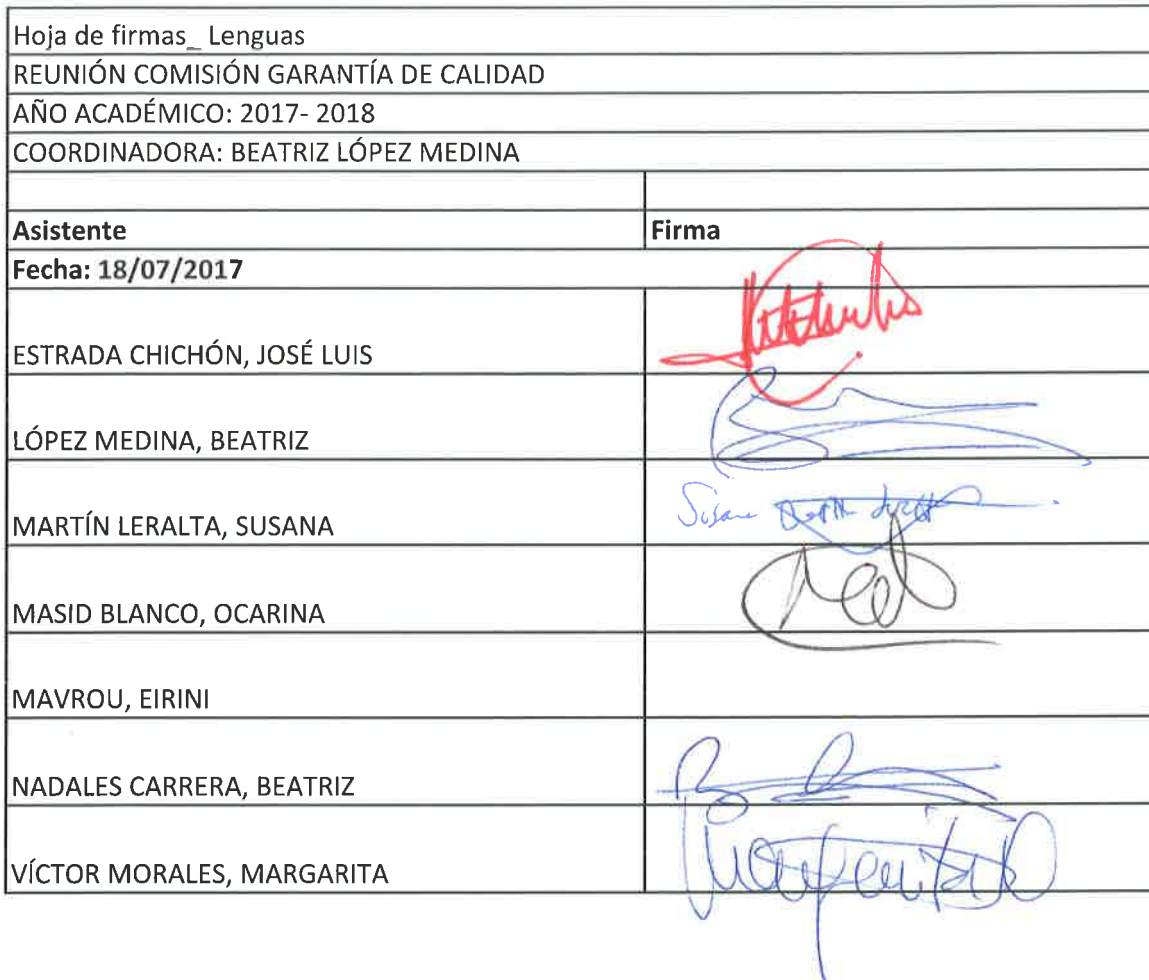 Hoja de firmas_ Lenguas
REUNIÓN COMISIÓN GARANTÍA DE CALIDAD
AÑO ACADÉMICO: 2017- 2018
COORDINADORA: BEATRIZ LÓPEZ MEDINA
Asistente Firma
Fecha: 18/07/2017
ESTRADA CHICHÓN, JOSÉ LUIS
LÓPEZ MEDINA, BEATRIZ
MARTÍN LERALTA, SUSANA Susana
MASID BLANCO, OCARINA
MAVROU, EIRINI
NADALES CARRERA, BEATRIZ
VÍCTOR MORALES, MARGARITA Margarita